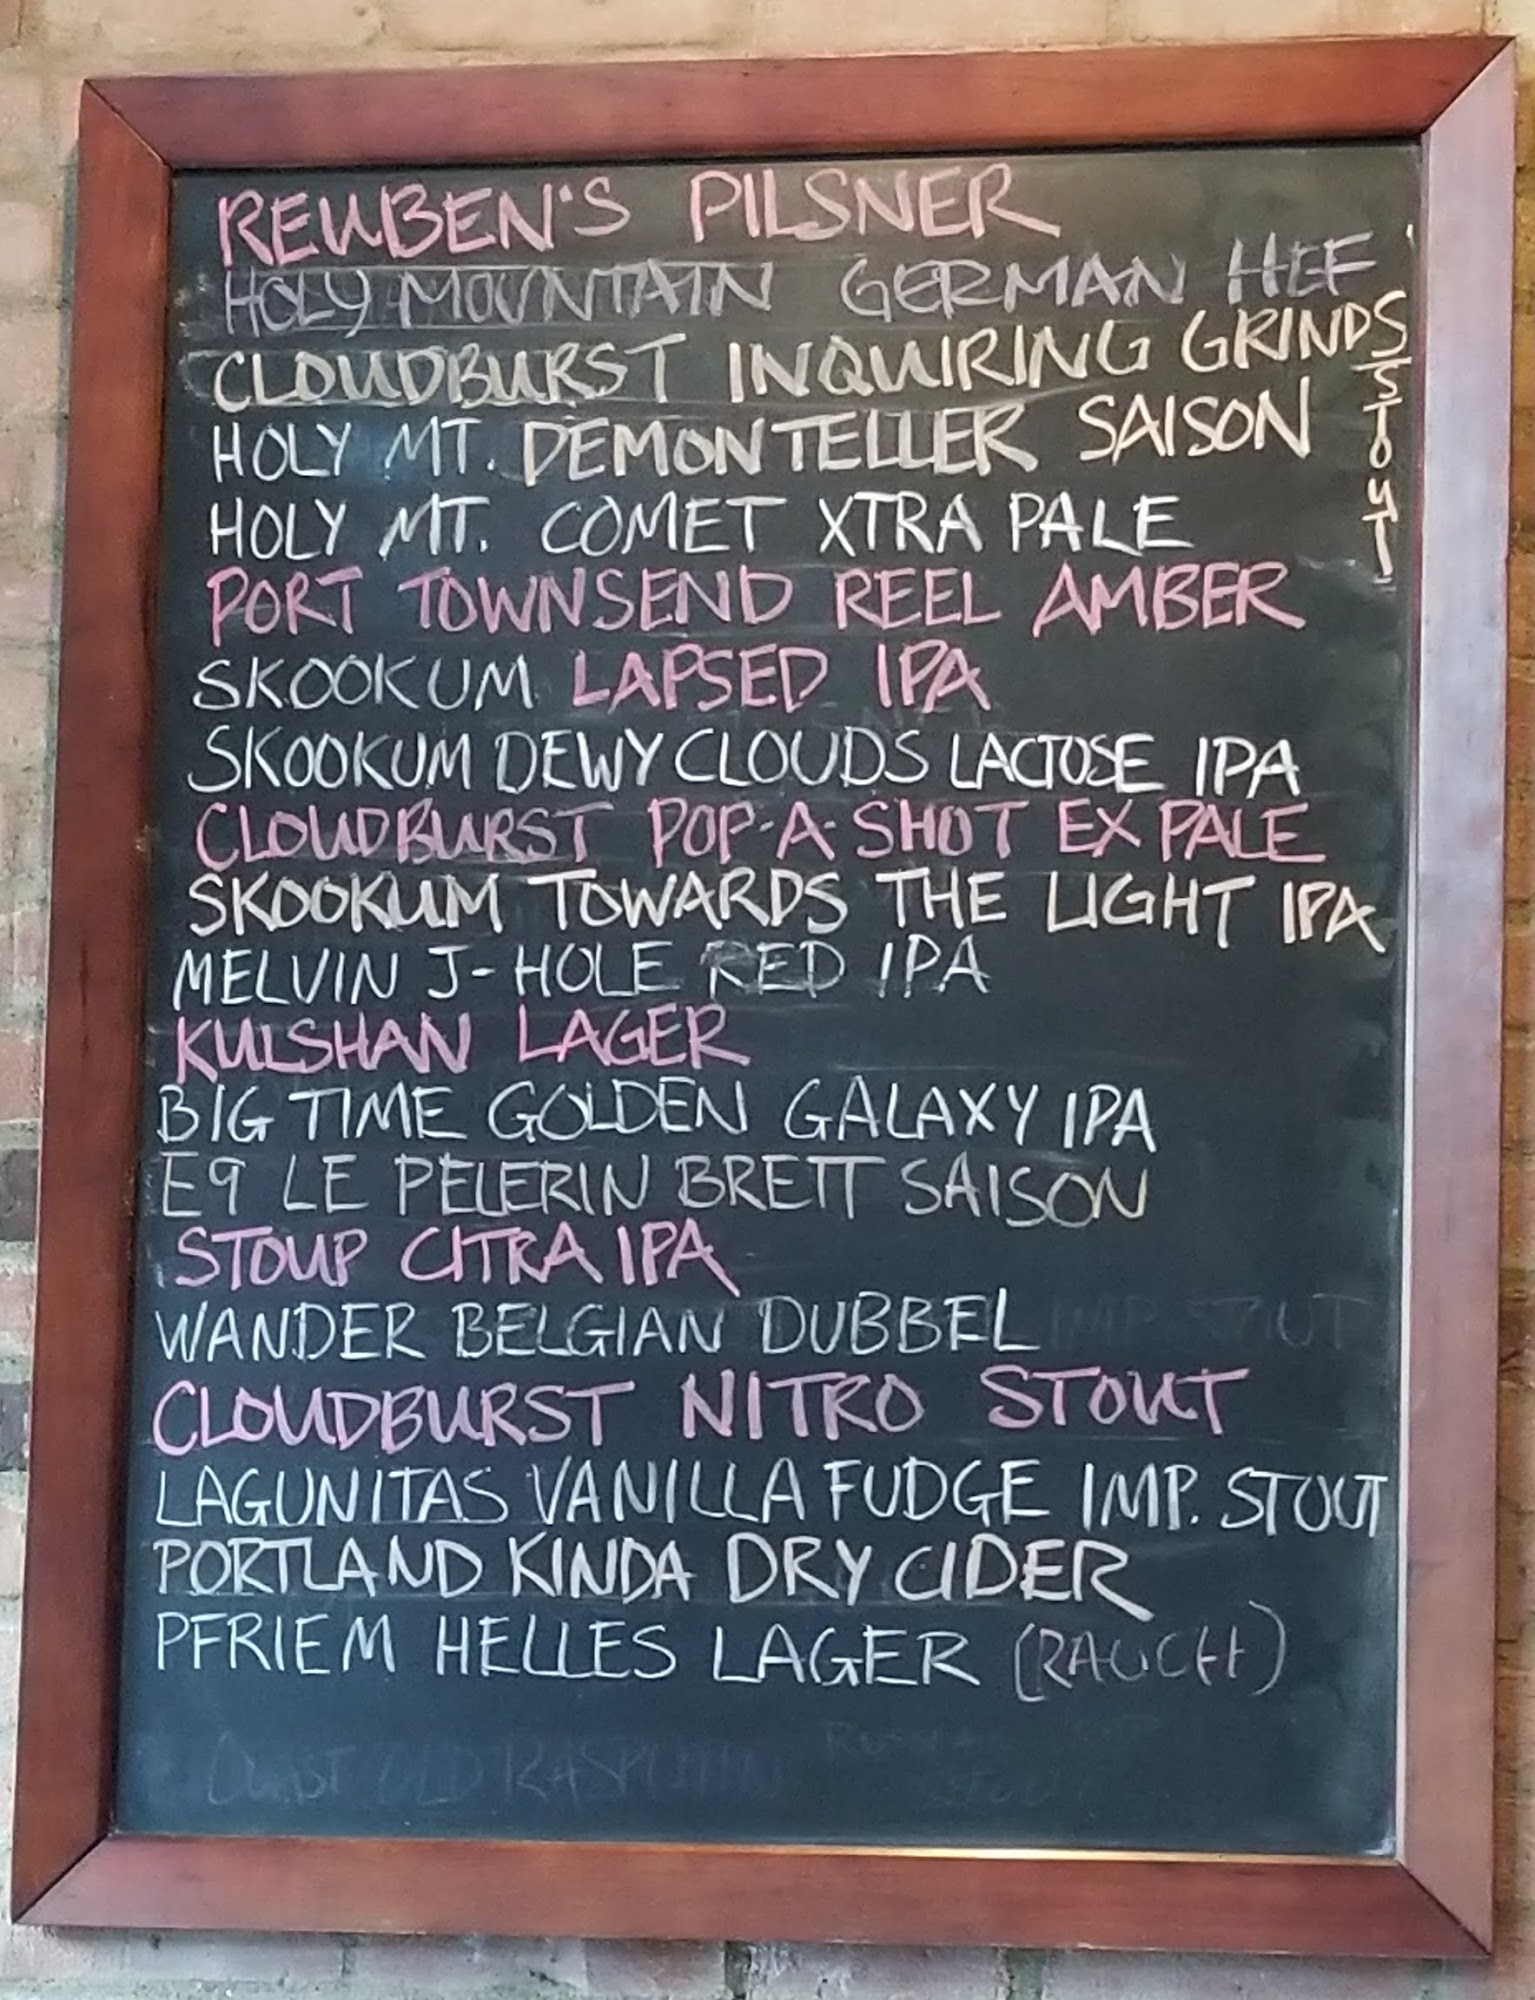 REUBEN'S PILSNER
HOLY MOUNTAIN GERMAN HEF
CLOUDBURST INQUIRING GRINDS STOUT
HOLY MT. DEMONTELLER SAISON
HOLY MT. COMET XTRA PALE
PORT TOWNSEND REEL AMBER
SKOOKUM LAPSED IPA
SKOOKUM DEWY CLOUDS LACTOSE IPA
CLOUDBURST POP-A-SHOT EX PALE
SKOOKUM TOWARDS THE LIGHT IPA
MELVIN J-HOLE RED IPA
KULSHAN LAGER
BIG TIME GOLDEN GALAXY IPA
E9 LE PELERIN BRETT SAISON
STOUP CITRA IPA
WANDER BELGIAN DUBBEL IMP. STOUT
CLOUDBURST NITRO STOUT
LAGUNITAS VANILLA FUDGE IMP. STOUT
PORTLAND KINDA DRY CIDER
PFRIEM HELLES LAGER (RAUCH)
OLD RASPUTIN